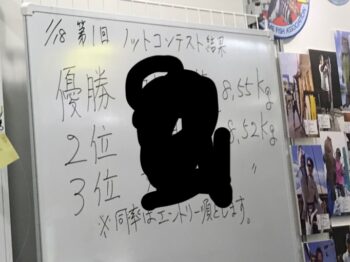 11/18 第1回 ノットコンテスト結果
優勝 8,55kg
2位 8,52kg
3位 〃
※同率はエントリー順とします。